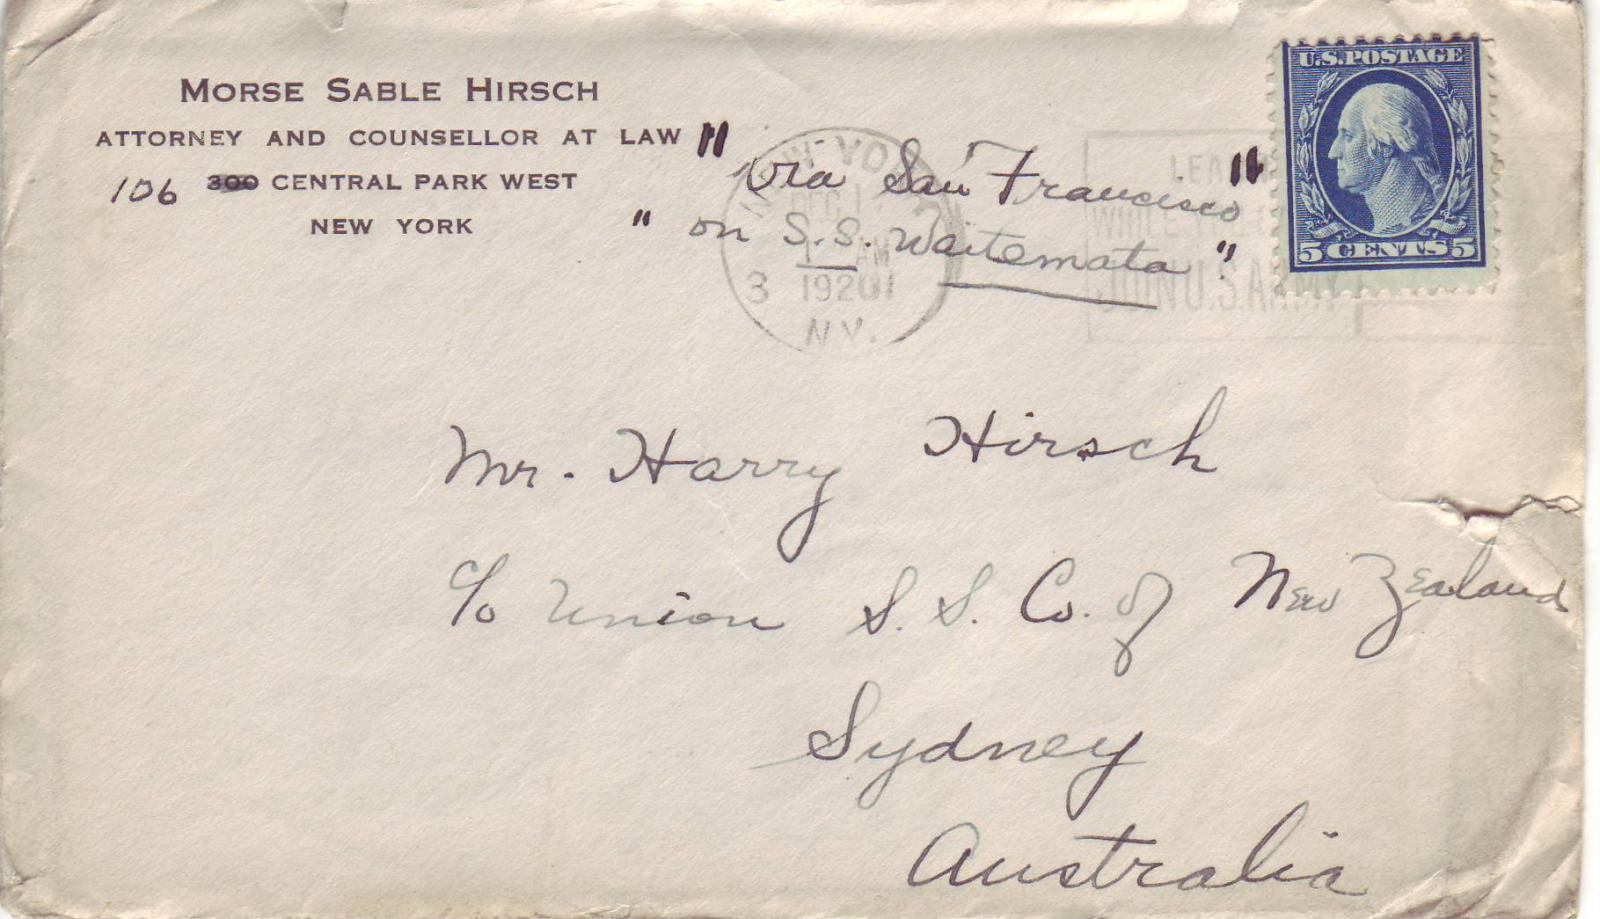 MORSE SABLE HIRSCH
ATTORNEY AND COUNSELLOR AT LAW
106 300 CENTRAL PARK WEST
NEW YORK
"via San Francisco"
"on S.S. Waitemata"
NEW YORK
DEC 1
AM
3 1920
N.Y.
LEA
WHILE YOU
JOIN U.S. ARMY
U.S. POSTAGE
5 CENTS 5
Mr. Harry Hirsch
c/o Union S. S. Co. of New Zealand
Sydney
Australia